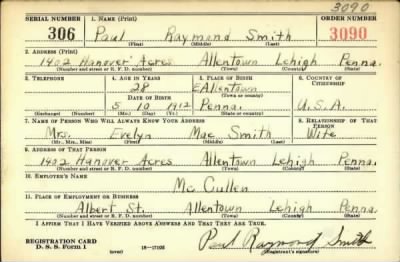 3090
SERIAL NUMBER 1. NAME (Print) ORDER NUMBER
306 Paul Raymond Smith 3090
(First) (Middle) (Last)
2. ADDRESS (Print)
1402 Hanover Acres Allentown Lehigh Penna.
(Number and street or R. F. D. number) (Town) (County) (State)
3. TELEPHONE 4. AGE IN YEARS 5. PLACE OF BIRTH 6. COUNTRY OF CITIZENSHIP
28 E Allentown
DATE OF BIRTH (Town or county)
5 10 1912 Penna. U.S.A.
(Exchange) (Number) (Mo.) (Day) (Yr.) (State or country)
7. NAME OF PERSON WHO WILL ALWAYS KNOW YOUR ADDRESS 8. RELATIONSHIP OF THAT PERSON
Mrs. Evelyn Mae Smith Wife
(Mr., Mrs., Miss) (First) (Middle) (Last)
9. ADDRESS OF THAT PERSON
1402 Hanover Acres Allentown Lehigh Penna.
(Number and street or R. F. D. number) (Town) (County) (State)
10. EMPLOYER'S NAME
Mc Cullen
11. PLACE OF EMPLOYMENT OR BUSINESS
Albert St. Allentown Lehigh Penna.
(Number and street or R. F. D. number) (Town) (County) (State)
I AFFIRM THAT I HAVE VERIFIED ABOVE ANSWERS AND THAT THEY ARE TRUE.
REGISTRATION CARD
D. S. S. Form 1 (over) 16—17105 Paul Raymond Smith
(Registrant's signature)